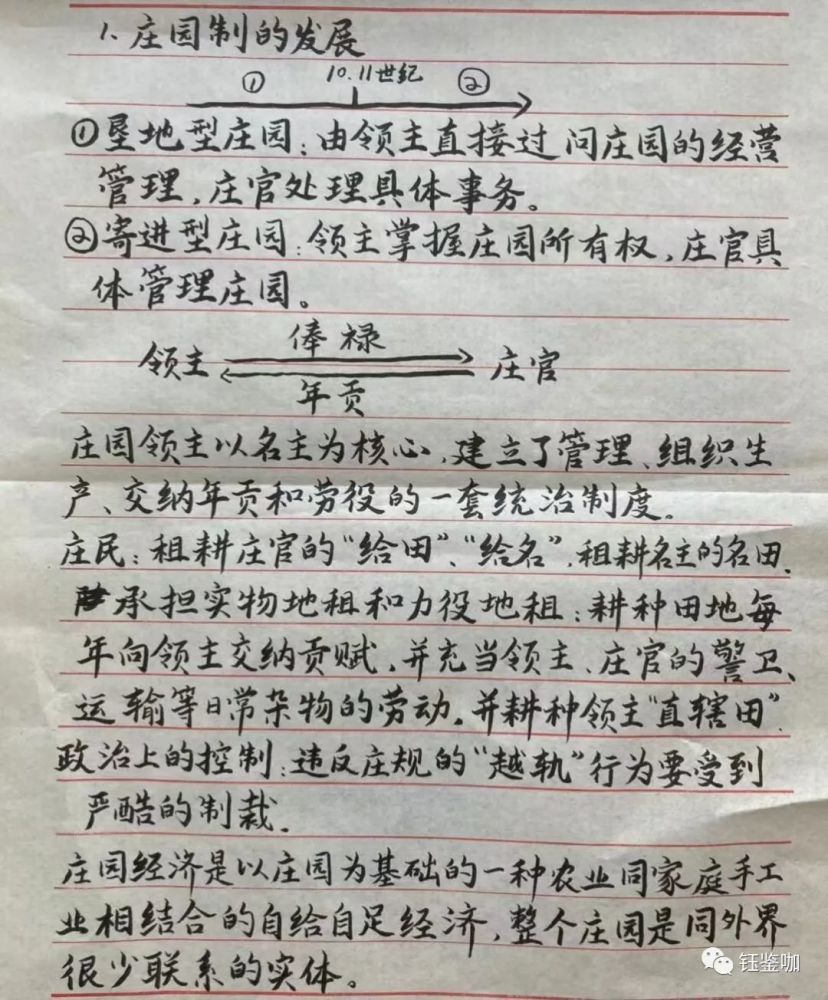 1. 庄园制的发展
① 10.11世纪 ②
①垦地型庄园：由领主直接过问庄园的经营
管理，庄官处理具体事务。
②寄进型庄园：领主掌握庄园所有权，庄官具
体管理庄园。
俸禄
领主 庄官
年贡
庄园领主以名主为核心，建立了管理、组织生
产、交纳年贡和劳役的一套统治制度。
庄民：租耕庄官的“给田”、“给名”，租耕名主的名田，
承担实物地租和力役地租：耕种田地每
年向领主交纳贡赋，并充当领主、庄官的警卫、
运输等日常杂物的劳动。并耕种领主“直辖田”.
政治上的控制：违反庄规的“越轨”行为要受到
严酷的制裁.
庄园经济是以庄园为基础的一种农业同家庭手工
业相结合的自给自足经济，整个庄园是同外界
很少联系的实体。
钰鉴咖